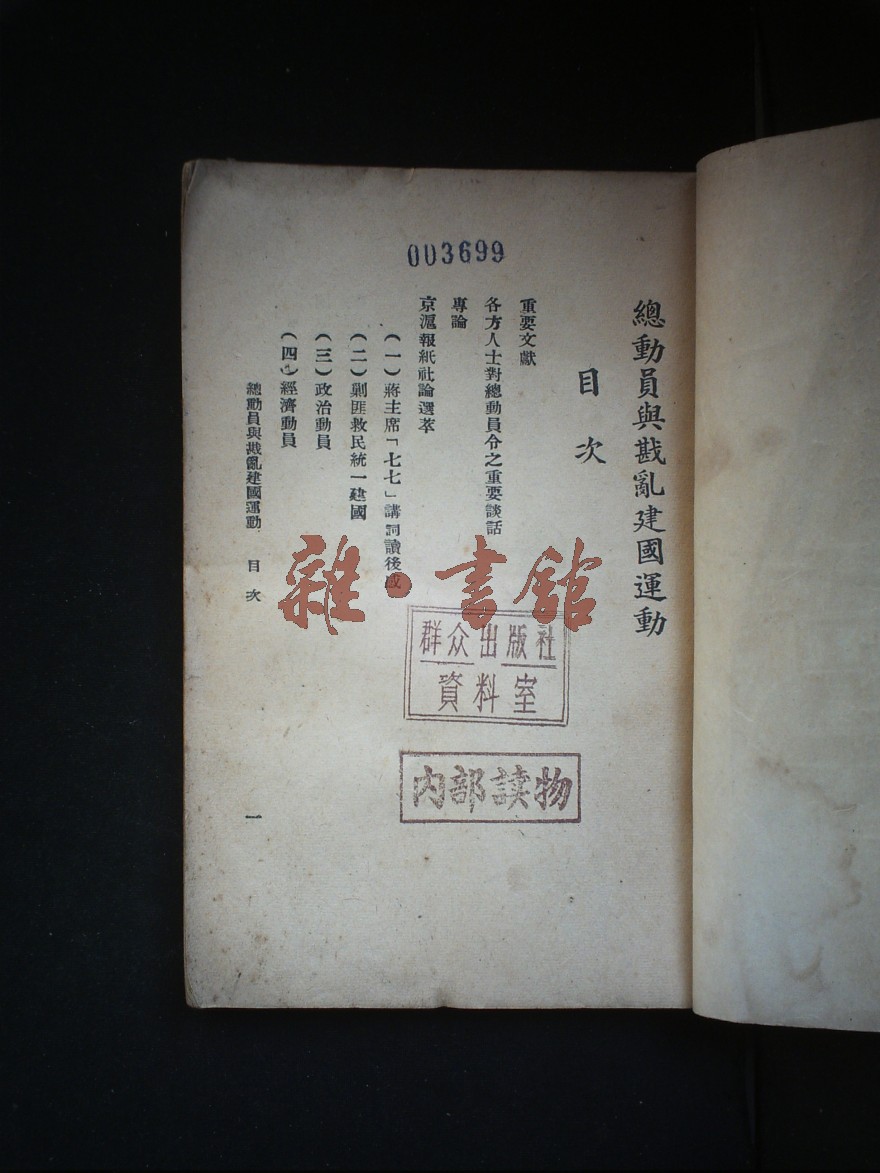 003699
總動員與戡亂建國運動
目次
重要文獻
各方人士對總動員令之重要談話
專論
京滬報紙社論選萃
（一）蔣主席「七七」講詞讀後感
（二）剿匪救民統一建國
（三）政治動員
（四）經濟動員
總動員與戡亂建國運動 目次
一
雜·書館
群众出版社
資料室
内部读物